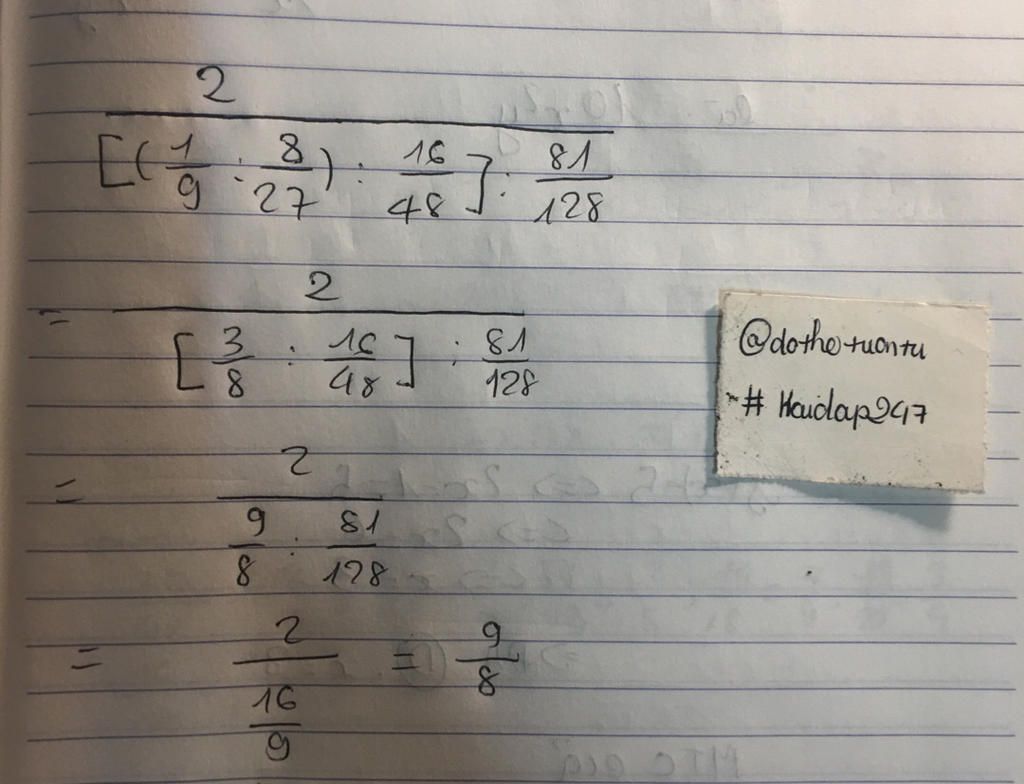 2
[(1/9 : 8/27) : 16/48] : 81/128
= 2
[3/8 : 16/48] : 81/128
= 2
9/8 : 81/128
= 2/(16/9) = 9/8
@dothetuantu
# Hoidap247